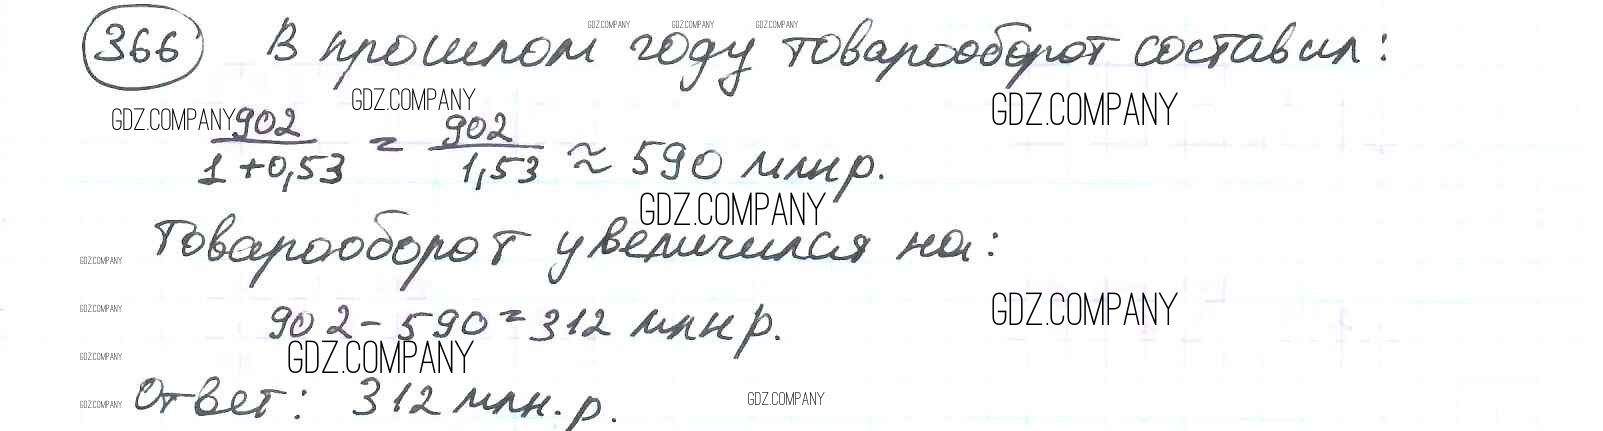 GDZ.COMPANY GDZ.COMPANY GDZ.COMPANY
366 В прошлом году товарооборот составил:
GDZ.COMPANY GDZ.COMPANY GDZ.COMPANY
902/1+0,53 = 902/1,53 ≈ 590 млн р.
GDZ.COMPANY
Товарооборот увеличился на:
GDZ.COMPANY
GDZ.COMPANY GDZ.COMPANY
902 - 590 = 312 млн р.
GDZ.COMPANY GDZ.COMPANY
Ответ: 312 млн. р.
GDZ.COMPANY GDZ.COMPANY